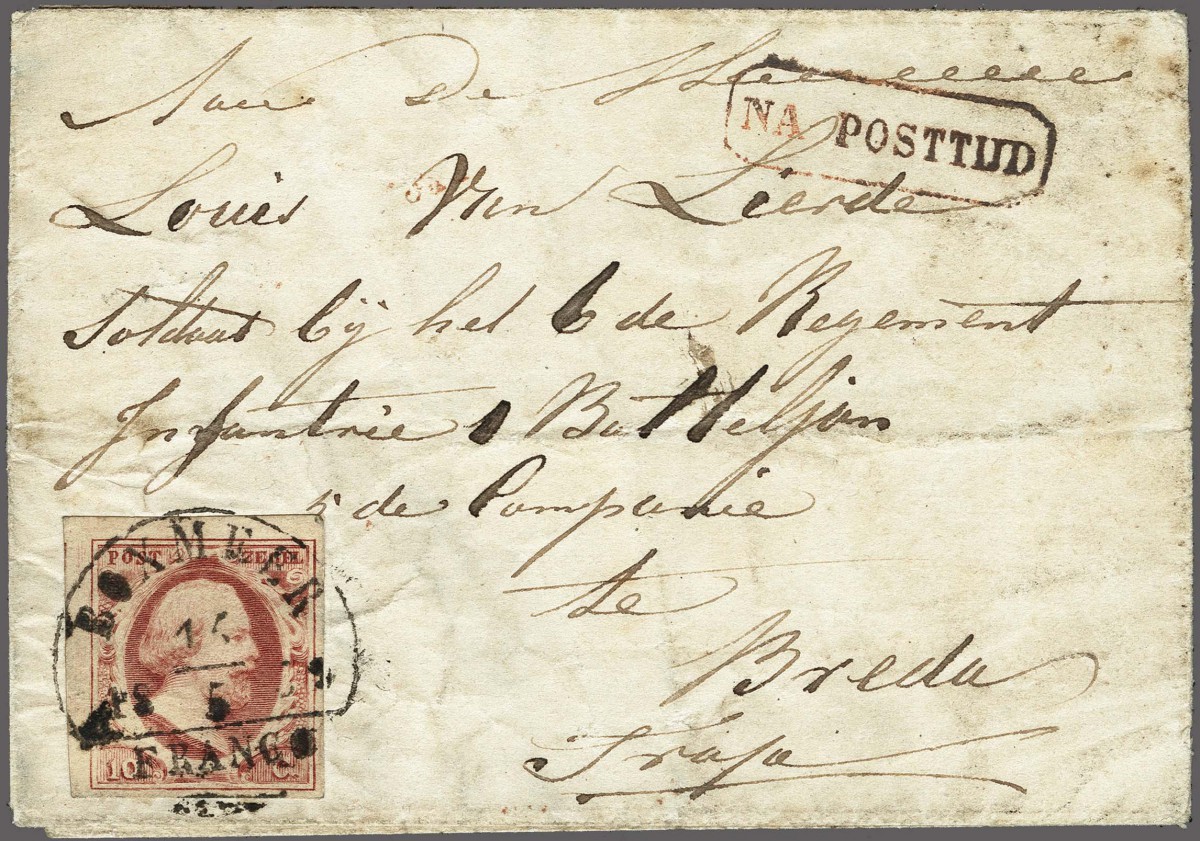 Aan De Heer
NA POSTTIJD
Louis Van Lierde
Soldaat bij het 6 de Regement
Infantrie 1 Batteljon
5 de Companie
te
Breda
POST ZEGEL
BOXMEER
5
FRANCO
10 C.